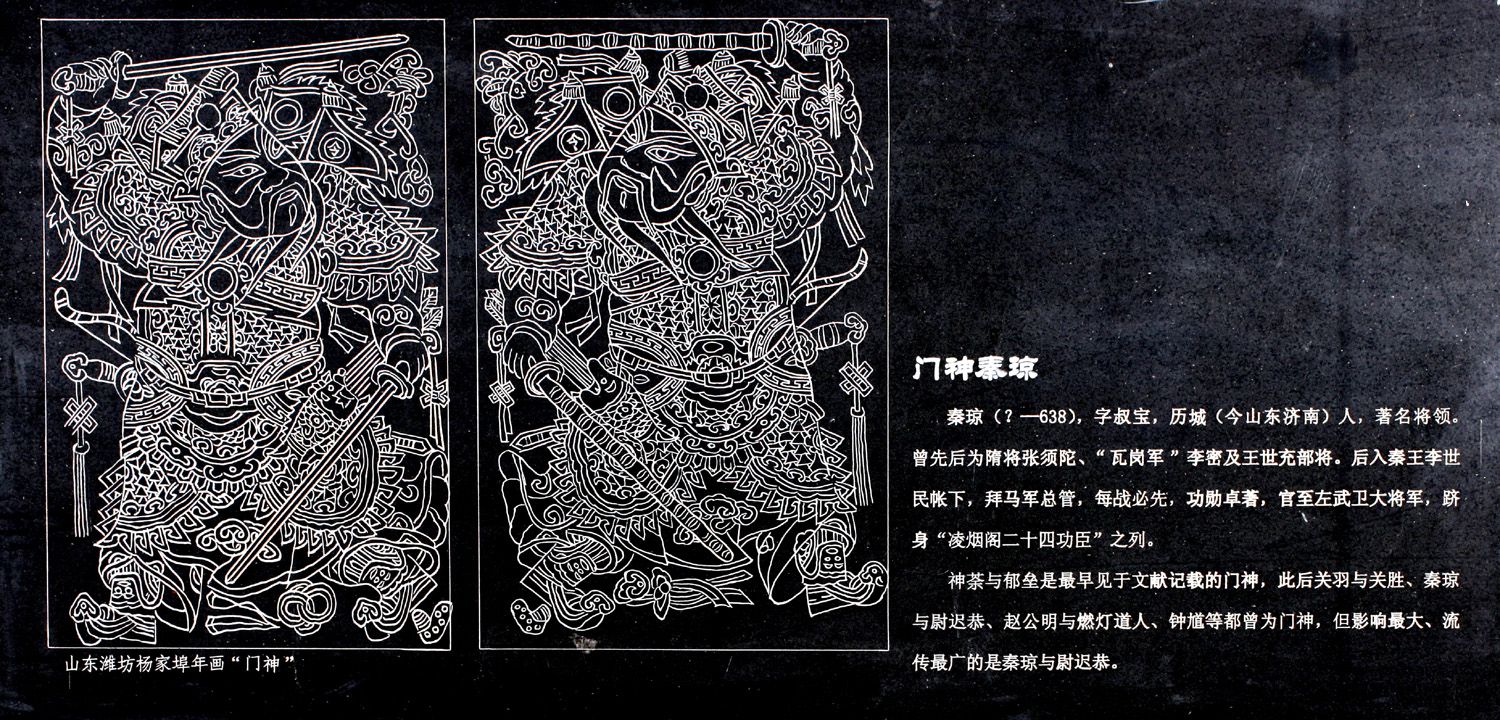 门神秦琼
秦琼（？—638），字叔宝，历城（今山东济南）人，著名将领。
曾先后为隋将张须陀、“瓦岗军”李密及王世充部将。后入秦王李世
民帐下，拜马军总管，每战必先，功勋卓著，官至左武卫大将军，跻
身“凌烟阁二十四功臣”之列。
神荼与郁垒是最早见于文献记载的门神，此后关羽与关胜、秦琼
与尉迟恭、赵公明与燃灯道人、钟馗等都曾为门神，但影响最大、流
传最广的是秦琼与尉迟恭。
山东潍坊杨家埠年画“门神”